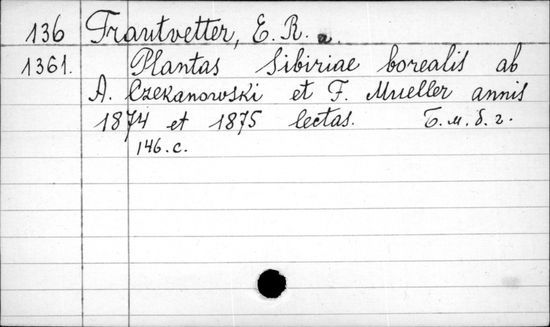 136 Trautvetter, E. R. a.
1361. Plantas Sibiriae borealis ab
A. Czekanowski et F. Mueller annis
1874 et 1875 lectas. Б.м.б.г.
146.с.